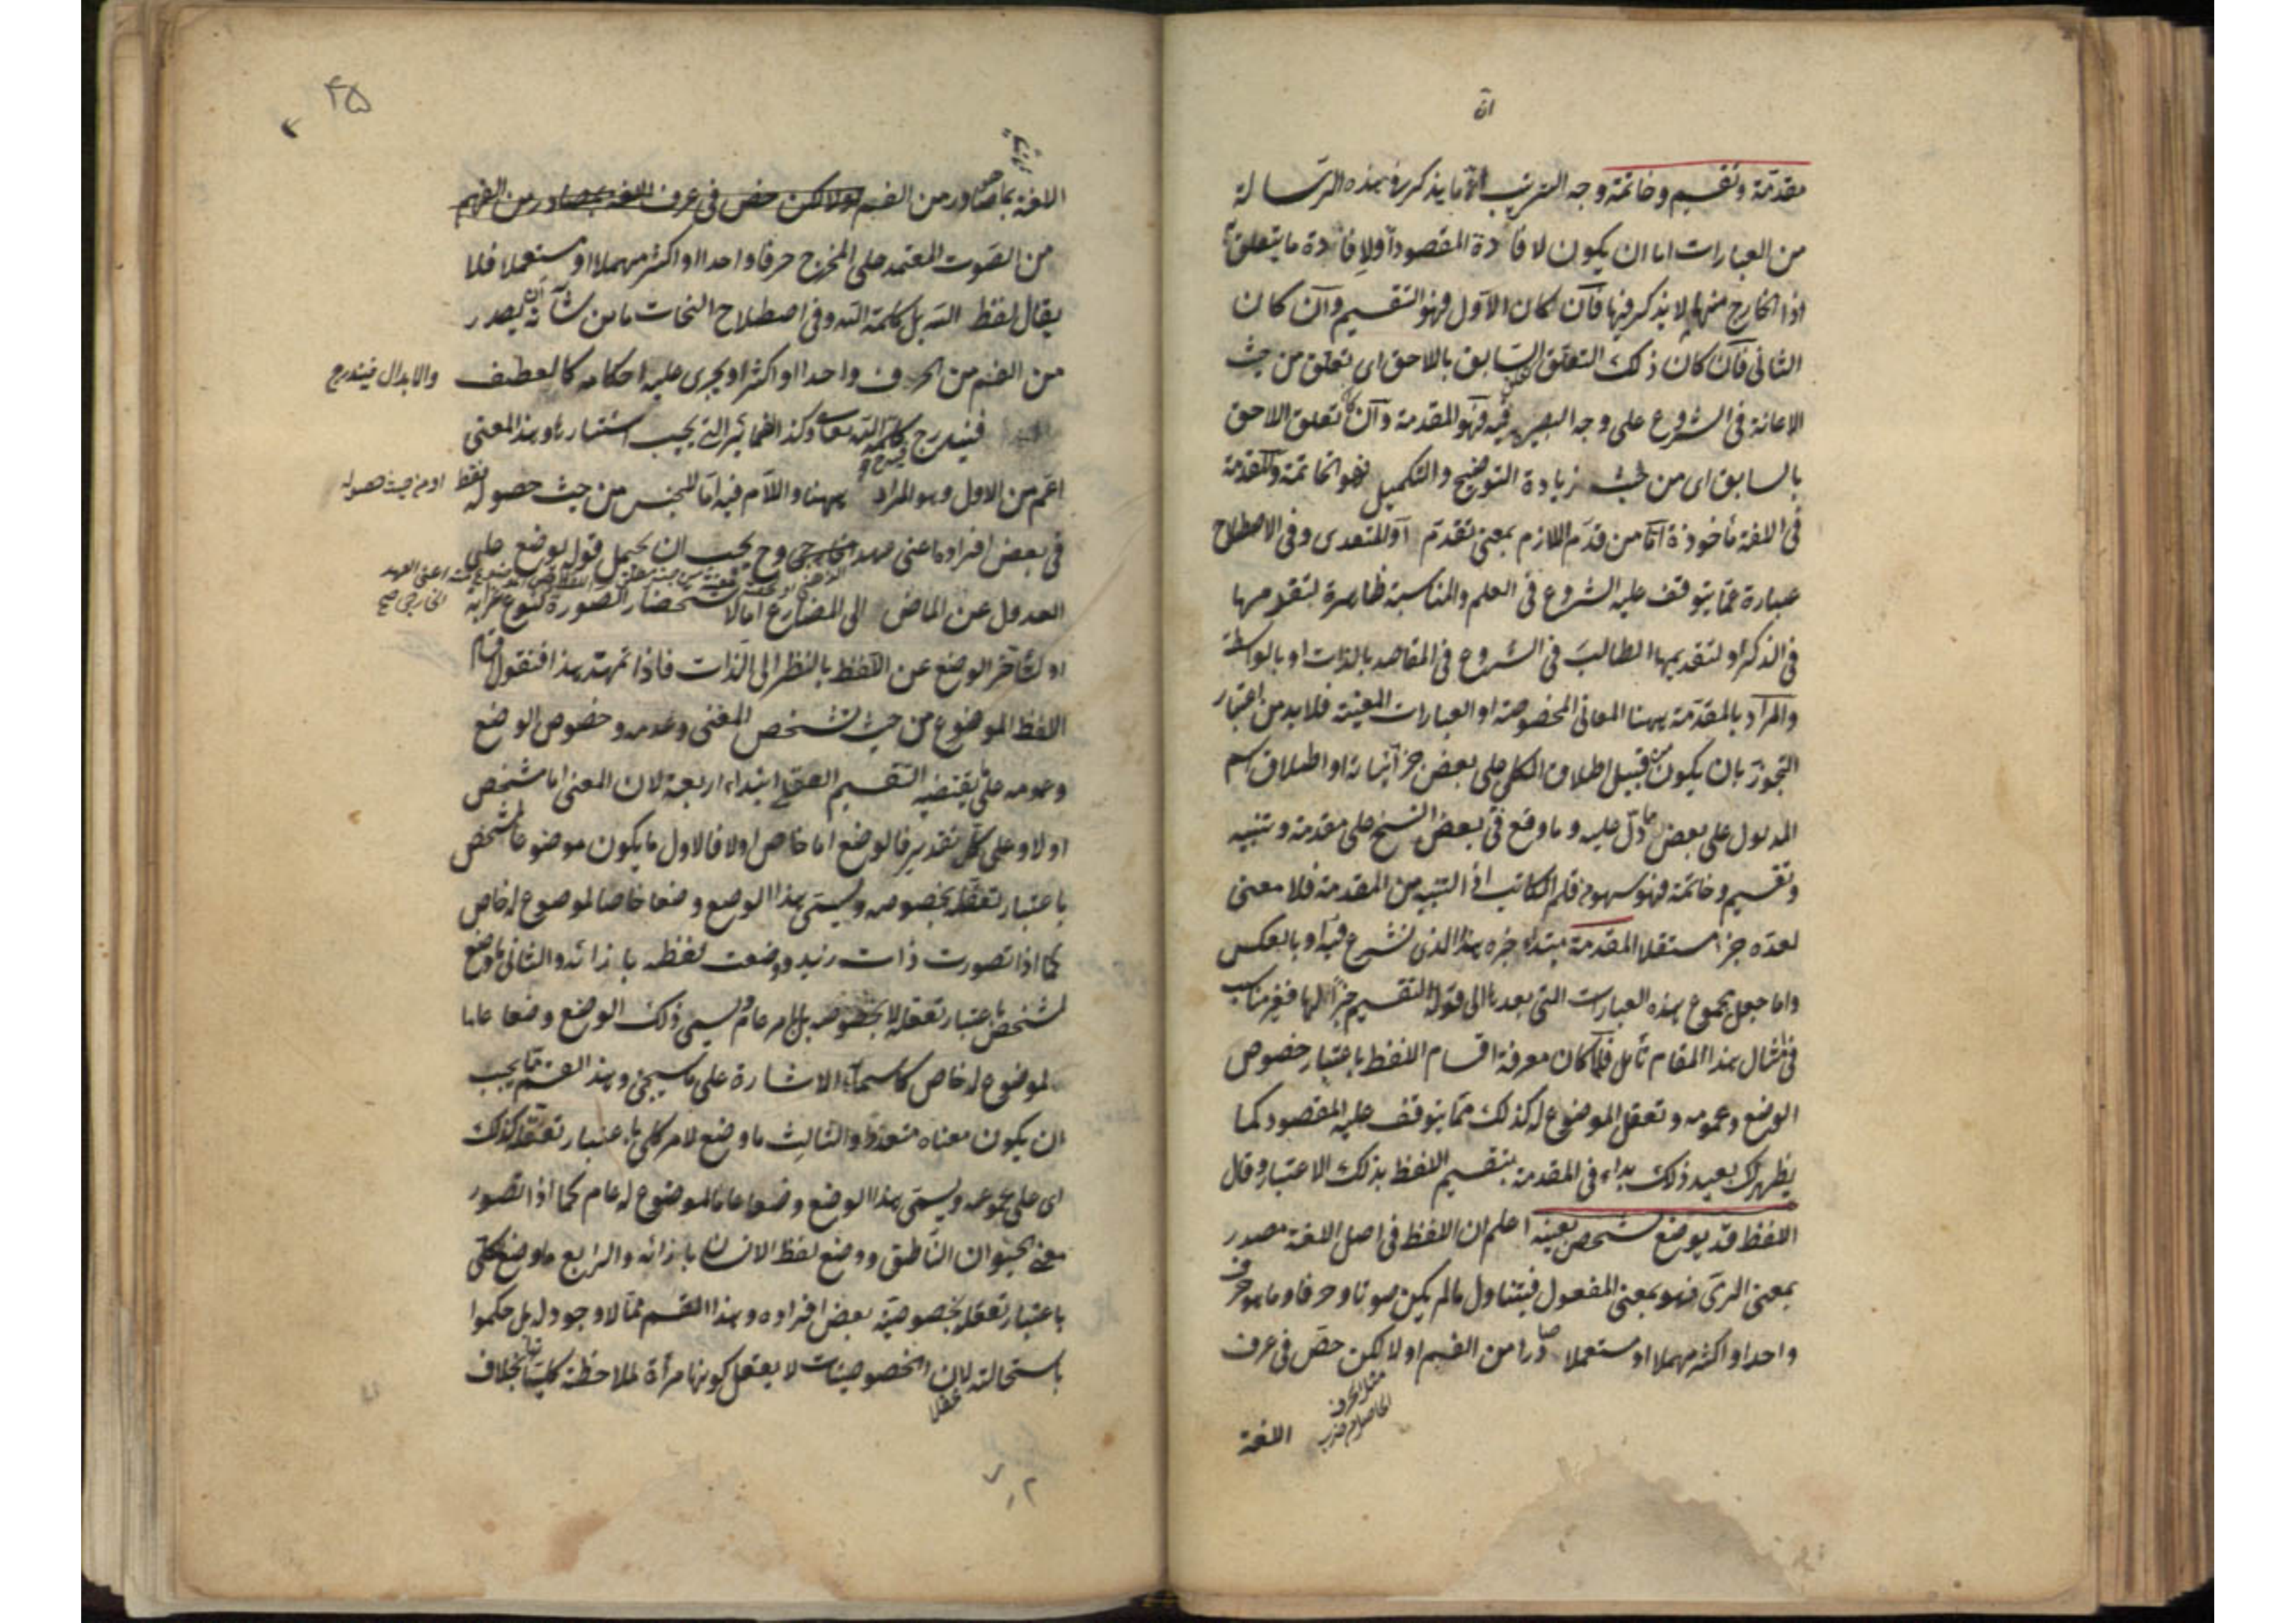 ان
مقدمة وتقسيم وخاتمة وجه الترتيب ان ما يذكر في هذه الرسالة
من العبارات اما ان يكون لافادة المقصود او لافادة ما يتعلق به
اذ الخارج منهما لا يذكر فيها فان كان الاول فهو التقسيم وان كان
الثاني فان كان ذلك التعلق السابق باللاحق اى تعلق من حيث
الاعانة في الشروع على وجه البصيرة فيه فهو المقدمة وان كان تعلق اللاحق
بالسابق اى من حيث زيادة التوضيح والتكميل فهو الخاتمة والمقدمة
في اللغة مأخوذة اما من قدم اللازم بمعنى تقدم او المتعدى وفى الاصطلاح
عبارة عما يتوقف عليه الشروع في العلم والمناسبة ظاهرة لتقدمها
في الذكر او لتقديمها الطالب في الشروع في المقاصد بالذات او بالواسطة
والمراد بالمقدمة يهنا المعانى المخصوصة او العبارات المعينة فلا بد من اعتبار
التجوز بان يكون من قبيل اطلاق الكلى على بعض جزئياته او اطلاق اسم
المدلول على بعض ما دل عليه وما وقع في بعض النسخ على مقدمة وتنبيه
وتقسيم وخاتمة فهو سهو من قلم الكاتب اذ التنبيه من المقدمة فلا معنى
لعده جزأ مستقلا المقدمة مبتداء خبره هذا الذى نشرع فيه او بالعكس
واما جعل مجموع هذه العبارات التى بعدها الى قوله التقسيم خبرا لها فغير مناسب
في امثال هذا المقام تأمل فلما كان معرفة اقسام اللفظ باعتبار خصوص
الوضع وعمومه وتعقل الموضوع له كذلك مما يتوقف عليه المقصود كما
يظهر لك بعيد ذلك بداء في المقدمة بتقسيم اللفظ بذلك الاعتبار وقال
اللفظ قد يوضع لشخص بعينه اعلم ان اللفظ في اصل اللغة مصدر
بمعنى الرمى فهو بمعنى المفعول فيتناول ما لم يكن صوتا وحرفا وما هو حرف
واحد او اكثر مهملا او مستعملا صادرا من الفم او لا لكن خص في عرف
اللغة
٤٥
اللغة بما صادر من الفم او لا لكن خص في عرف اللغة بما صادر من الفم
من الصوت المعتمد على المخرج حرفا واحدا او اكثر مهملا او مستعملا فلا
يقال لفظ الله بل كلمة الله وفى اصطلاح النحات ما من شانه ان يصدر
من الفم من الحرف واحدا او اكثر او يجرى عليه احكامه كالعطف
والابدال فيندرج
فيندرج فيه كلمة الله تعالى وكذا الضمائر التى يجب استتارها وهذا المعنى
اعم من الاول وهو المراد يهنا واللام فيه اما للجنس من حيث حصوله فقط
او من حيث حصوله
في بعض افراده اعنى عهد الخارجى وح يجب ان يحمل قوله يوضع على
العدول عن الماضى الى المضارع اما لاستحضار الصورة لنوع غرابة
الخارجى صح
او لتأخر الوضع عن اللفظ بالنظر الى الذات فاذا تمهد هذا فنقول اقسام
اللفظ الموضوع من حيث تشخص المعنى وعدمه وخصوص الوضع
وعمومه على ما يقتضيه التقسيم العقلى ابتداء اربعة لان المعنى اما مشخص
اولا وعلى كل تقدير فالوضع اما خاص اولا فالاول ما يكون موضوعا لمشخص
باعتبار تعقله بخصوصه ويسمى هذا الوضع وضعا خاصا لموضوع له خاص
كما اذا تصورت ذات زيد ووضعت لفظه بازائه والثانى ما وضع
لمشخص باعتبار تعقله لا بخصوصه بل بامر عام ويسمى ذلك الوضع وضعا عاما
لموضوع له خاص كاسماء الاشارة على ما سيجئ وهذا القسم مما يجب
ان يكون معناه متعددا والثالث ما وضع لامر كلى باعتبار تعقله كذلك
اى على عمومه ويسمى هذا الوضع وضعا عاما لموضوع له عام كما اذا تصور
معنى الحيوان الناطق ووضع لفظ الانسان بازائه والرابع ما وضع لكلى
باعتبار تعقله بخصوصية بعض افراده وهذا القسم مما لا وجود له بل حكموا
باستحالته لان الخصوصيات لا يعقل كونها مرآة لملاحظة كلياتها بخلاف